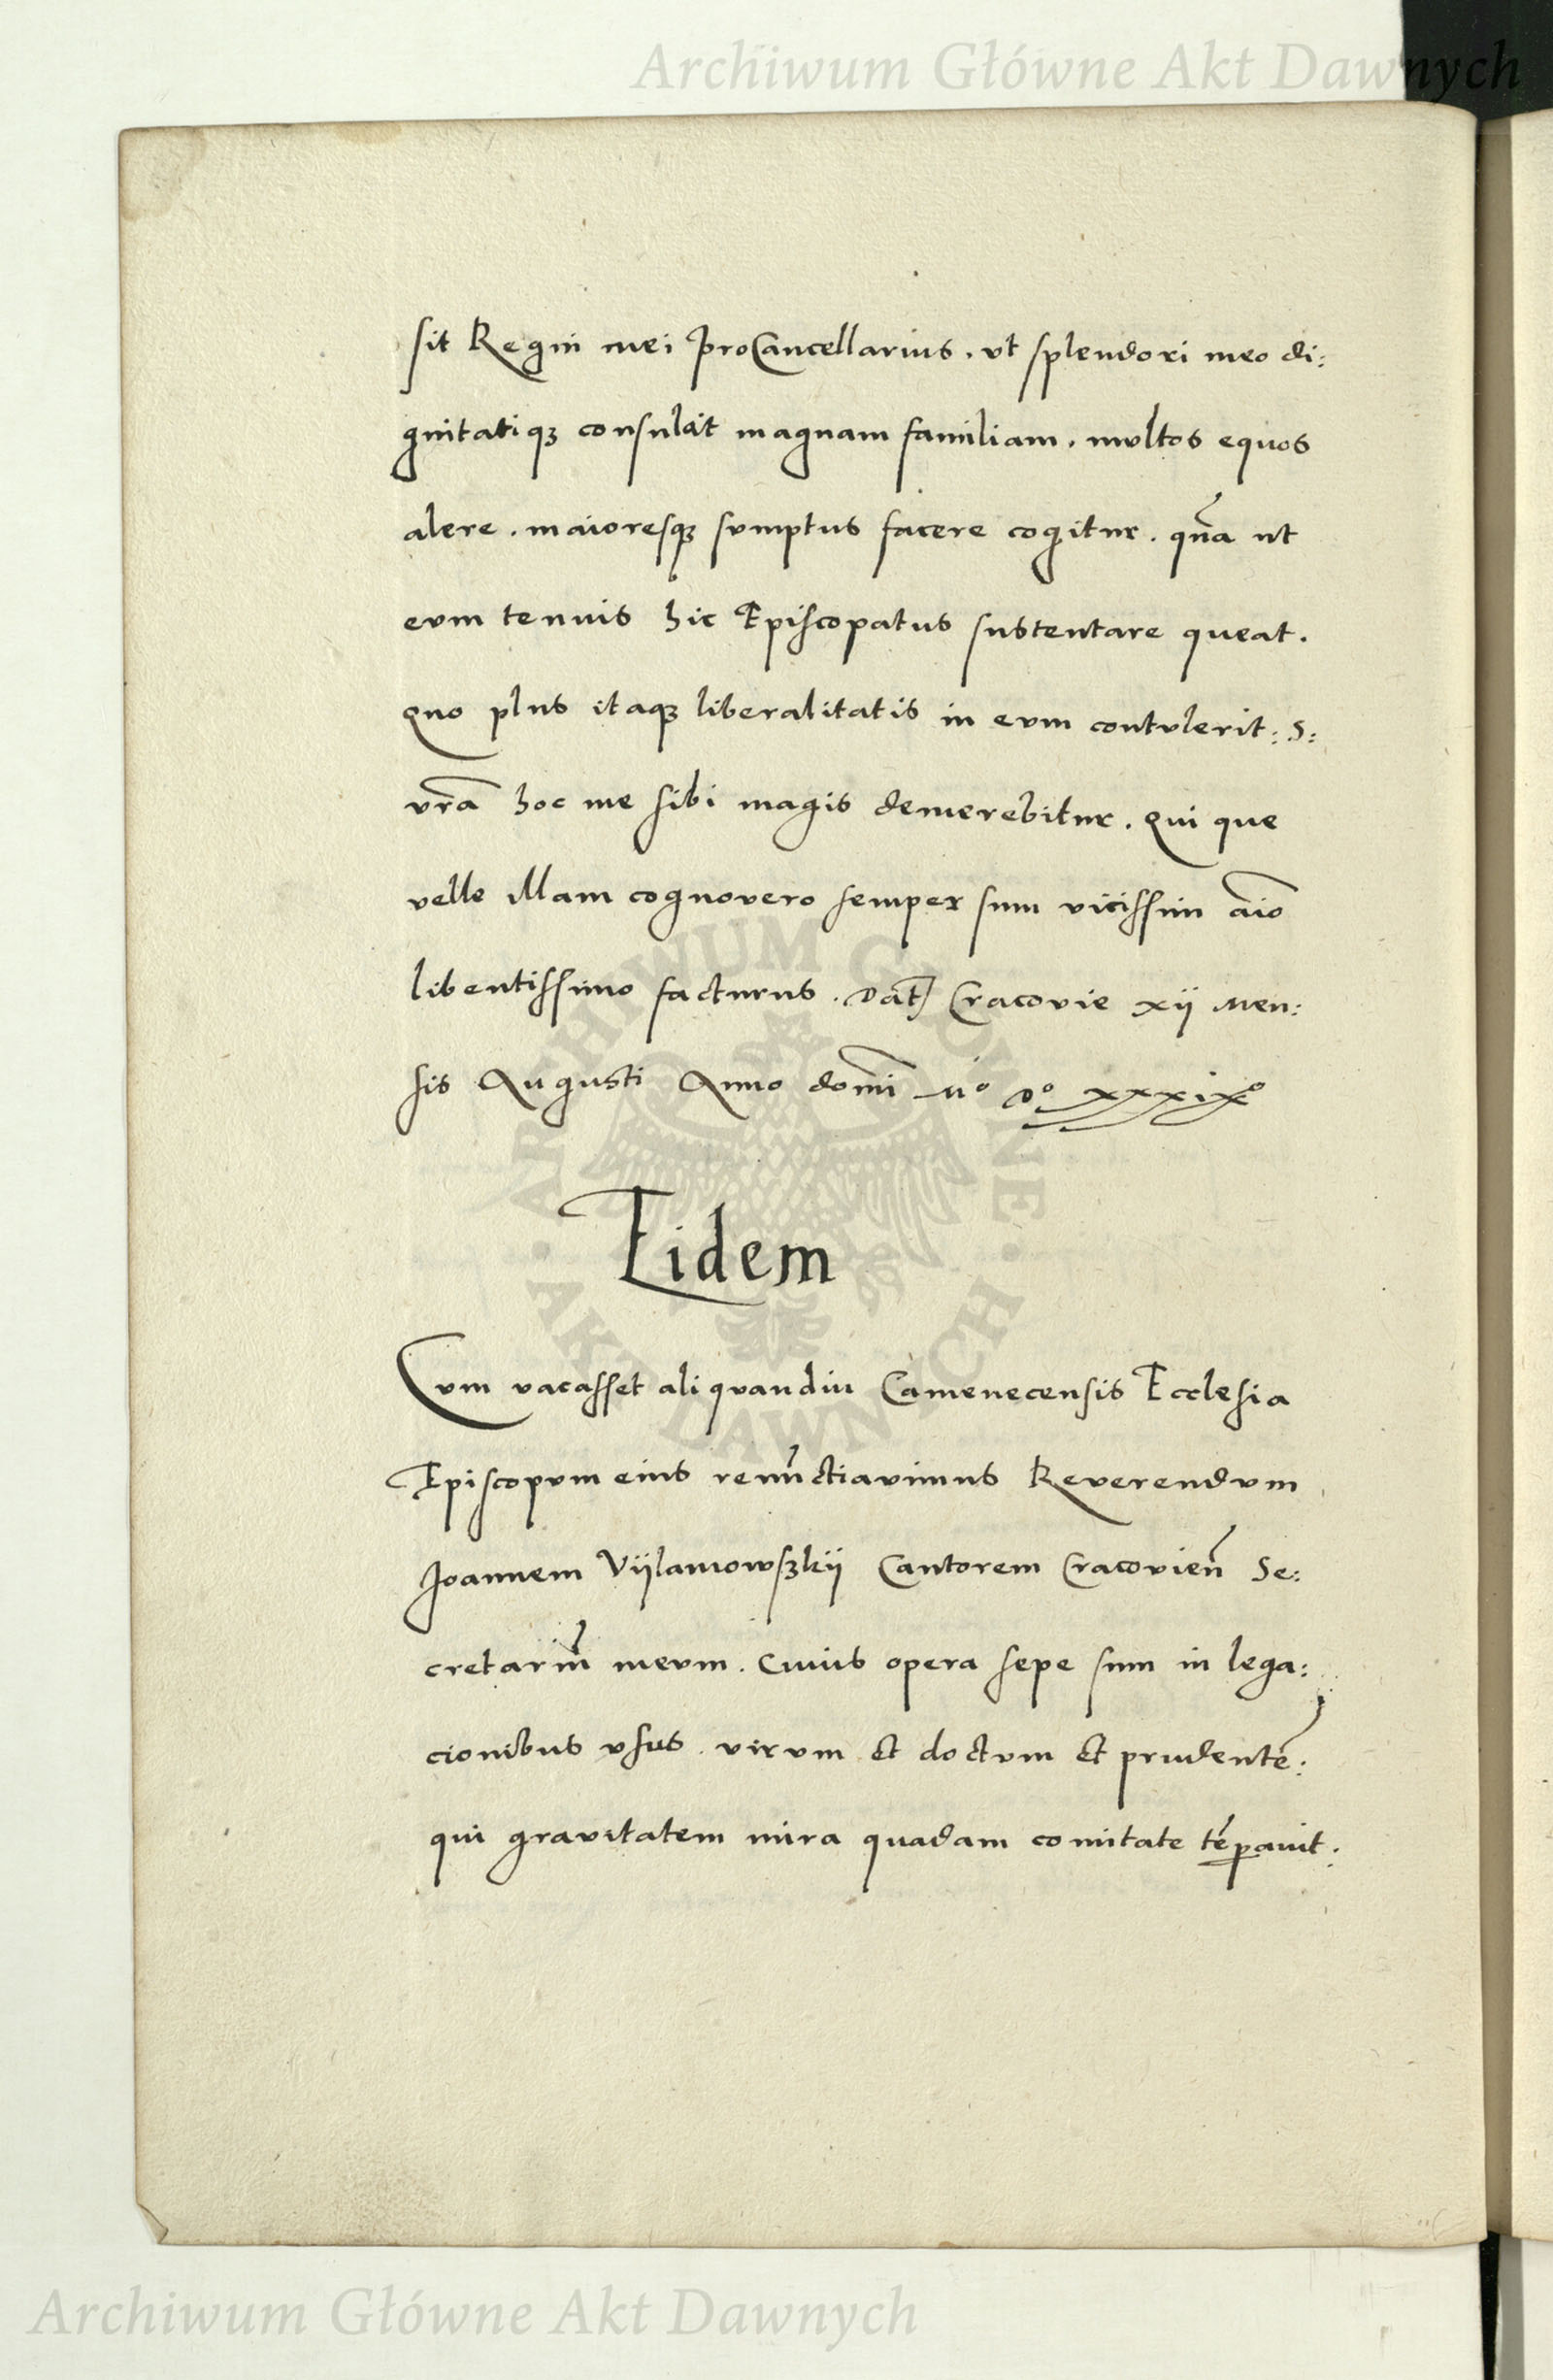 Archiwum Główne Akt Dawnych
sit Regni mei ProCancellarius. vt splendori meo di:
gnitatiqꝫ consulat magnam familiam. multos equos
alere. maioresqꝫ sumptus facere cogitur. qua͂ ut
eum tenuis hic Episcopatus sustentare queat.
quo plus itaqꝫ liberalitatis in eum contulerit: S:
vr͂a hoc me sibi magis demerebitur. qui que
velle illam cognovero semper sum vicissim ai͂o
libentissimo facturus. Dat͂ Cracovie xij Men:
sis Augusti Anno domi͂ Mº Dº xxxixº
Eidem
Cum vacasset aliquandiu Camenecensis Ecclesia
Episcopum eius renu͂ctiavimus Reverendum
Joannem Vijlamowsꝫkij Cantorem Cracovien͂ Se:
cretariu͂ meum. Cuius opera sepe sum in lega:
cionibus usus. virum et doctum et prudente͂:
qui gravitatem mira quadam comitate te͂ꝑavit:
ARCHIWUM GŁÓWNE
AKT DAWNYCH
Archiwum Główne Akt Dawnych